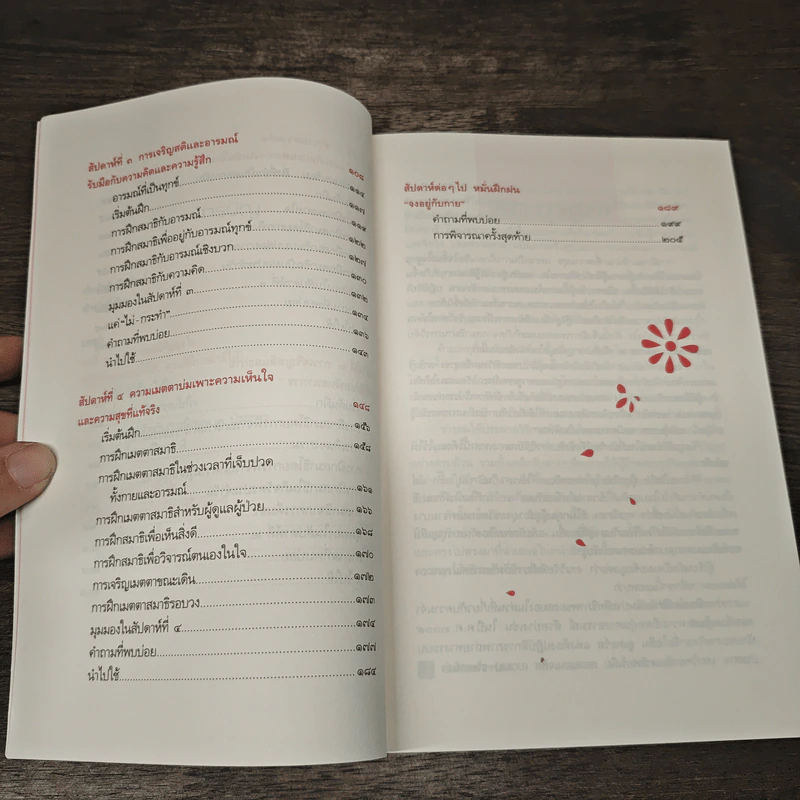 สัปดาห์ที่ ๓ การเจริญสติและอารมณ์
รับมือกับความคิดและความรู้สึก ๑๐๘
อารมณ์ที่เป็นทุกข์ ๑๑๔
เริ่มต้นฝึก ๑๑๗
การฝึกสมาธิกับอารมณ์ ๑๑๙
การฝึกสมาธิเพื่ออยู่กับอารมณ์ทุกข์ ๑๒๒
การฝึกสมาธิกับอารมณ์เชิงบวก ๑๒๗
การฝึกสมาธิกับความคิด ๑๓๐
มุมมองในสัปดาห์ที่ ๓ ๑๓๒
แค่ “ไม่-กระทำ” ๑๓๔
คำถามที่พบบ่อย ๑๓๖
นำไปใช้ ๑๔๓
สัปดาห์ที่ ๔ ความเมตตาบ่มเพาะความเห็นใจ
และความสุขที่แท้จริง ๑๔๘
เริ่มต้นฝึก ๑๕๖
การฝึกเมตตาสมาธิ ๑๕๘
การฝึกเมตตาสมาธิในช่วงเวลาที่เจ็บปวด
ทั้งกายและอารมณ์ ๑๖๑
การฝึกเมตตาสมาธิสำหรับผู้ดูแลผู้ป่วย ๑๖๖
การฝึกสมาธิเพื่อเห็นสิ่งดี ๑๖๘
การฝึกสมาธิเพื่อวิจารณ์ตนเองในใจ ๑๗๐
การเจริญเมตตาขณะเดิน ๑๗๒
การฝึกเมตตาสมาธิรอบวง ๑๗๓
มุมมองในสัปดาห์ที่ ๔ ๑๗๔
คำถามที่พบบ่อย ๑๗๗
นำไปใช้ ๑๘๔
สัปดาห์ต่อๆ ไป หมั่นฝึกฝน
“จงอยู่กับกาย” ๑๘๙
คำถามที่พบบ่อย ๑๙๙
การพิจารณาครั้งสุดท้าย ๒๐๕